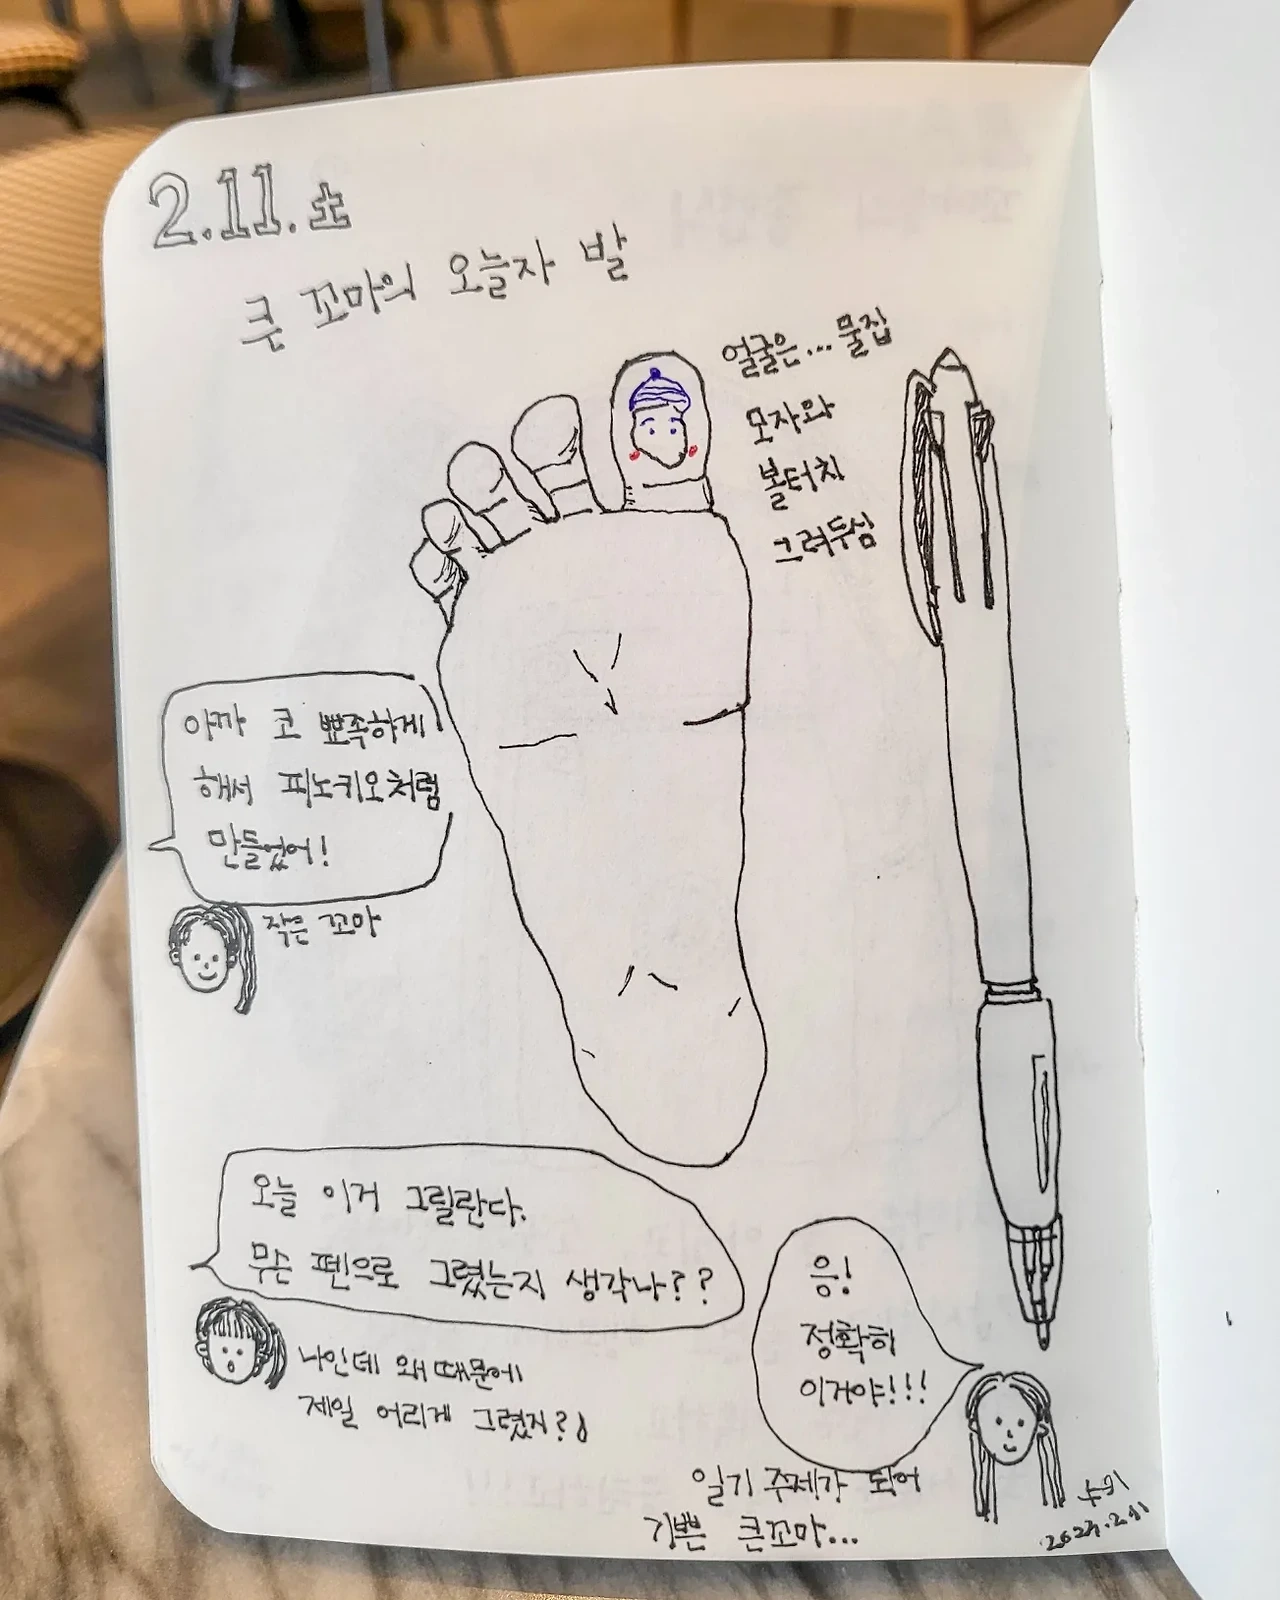 2.11.土
큰 꼬마의 오늘자 발
얼굴은... 물집
모자와
볼터치
그려두심
아까 코 뾰족하게
해서 피노키오처럼
만들었어!
작은 꼬마
오늘 이거 그릴란다.
무슨 펜으로 그렸는지 생각나??
나인데 왜 때문에
제일 어리게 그렸지?!
응!
정확히
이거야!!!
일기 주제가 되어
기쁜 큰꼬마...
2023.2.11